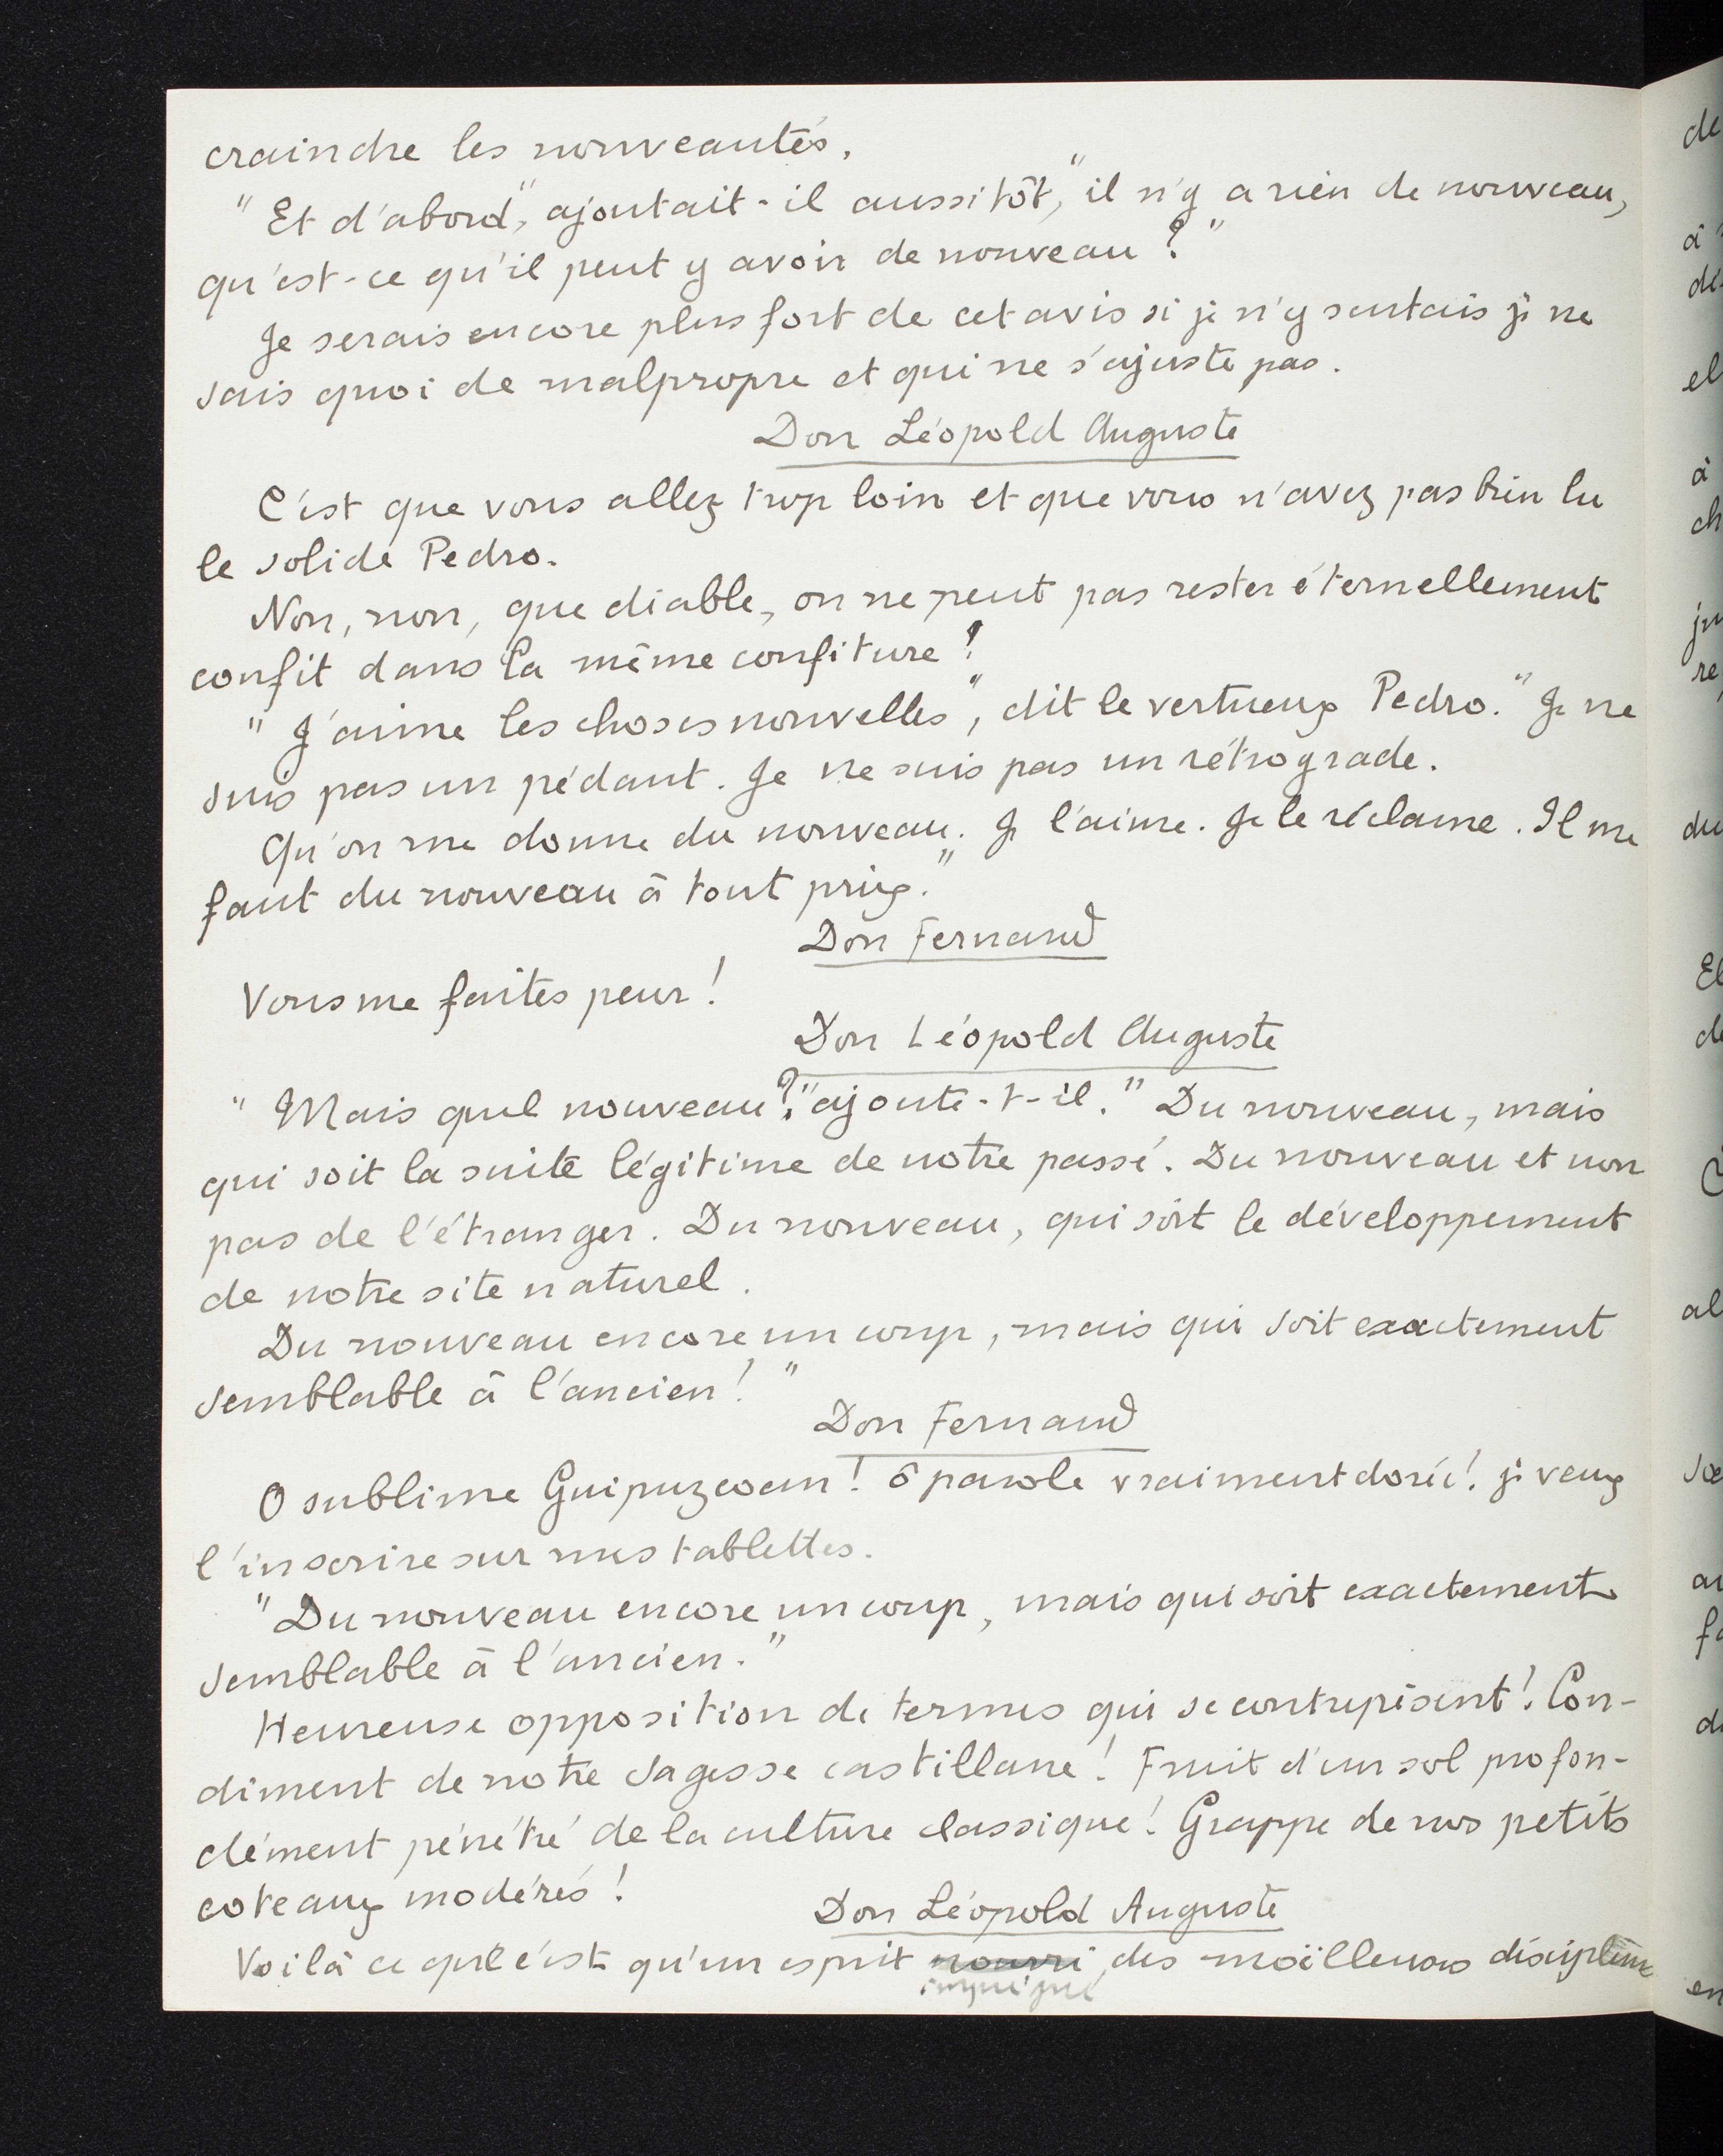 craindre les nouveautés.
"Et d'abord", ajoutait-il aussitôt, "il n'y a rien de nouveau,
qu'est-ce qu'il peut y avoir de nouveau ?"
Je serais encore plus fort de cet avis si je n'y sentais je ne
sais quoi de malpropre et qui ne s'ajuste pas.
Don Léopold Auguste
C'est que vous allez trop loin et que vous n'avez pas bien lu
le solide Pedro.
Non, non, que diable, on ne peut pas rester éternellement
confit dans la même confiture !
"J'aime les choses nouvelles", dit le vertueux Pedro. "Je ne
suis pas un pédant. Je ne suis pas un rétrograde.
Qu'on me donne du nouveau. Je l'aime. Je le réclame. Il me
faut du nouveau à tout prix."
Don Fernand
Vous me faites peur !
Don Léopold Auguste
"Mais quel nouveau ?" ajoute-t-il. "Du nouveau, mais
qui soit la suite légitime de notre passé. Du nouveau et non
pas de l'étranger. Du nouveau, qui soit le développement
de notre site naturel.
Du nouveau encore un coup, mais qui soit exactement
semblable à l'ancien !"
Don Fernand
O sublime Guipuzcoan ! ô parole vraiment dorée ! je veux
l'inscrire sur mes tablettes.
"Du nouveau encore un coup, mais qui soit exactement
semblable à l'ancien."
Heureuse opposition de termes qui se contrepèsent ! Con-
diment de notre sagesse castillane ! Fruit d'un sol profon-
dément pénétré de la culture classique ! Grappe de nos petits
coteaux modérés !
Don Léopold Auguste
Voilà ce que c'est qu'un esprit nourri des moëlleuses
imprégné